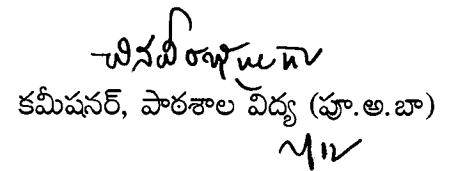 చినవీరభద్రుడు
కమీషనర్, పాఠశాల విద్య (పూ.అ.బా)